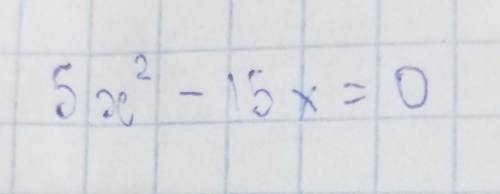 5x² - 15x = 0